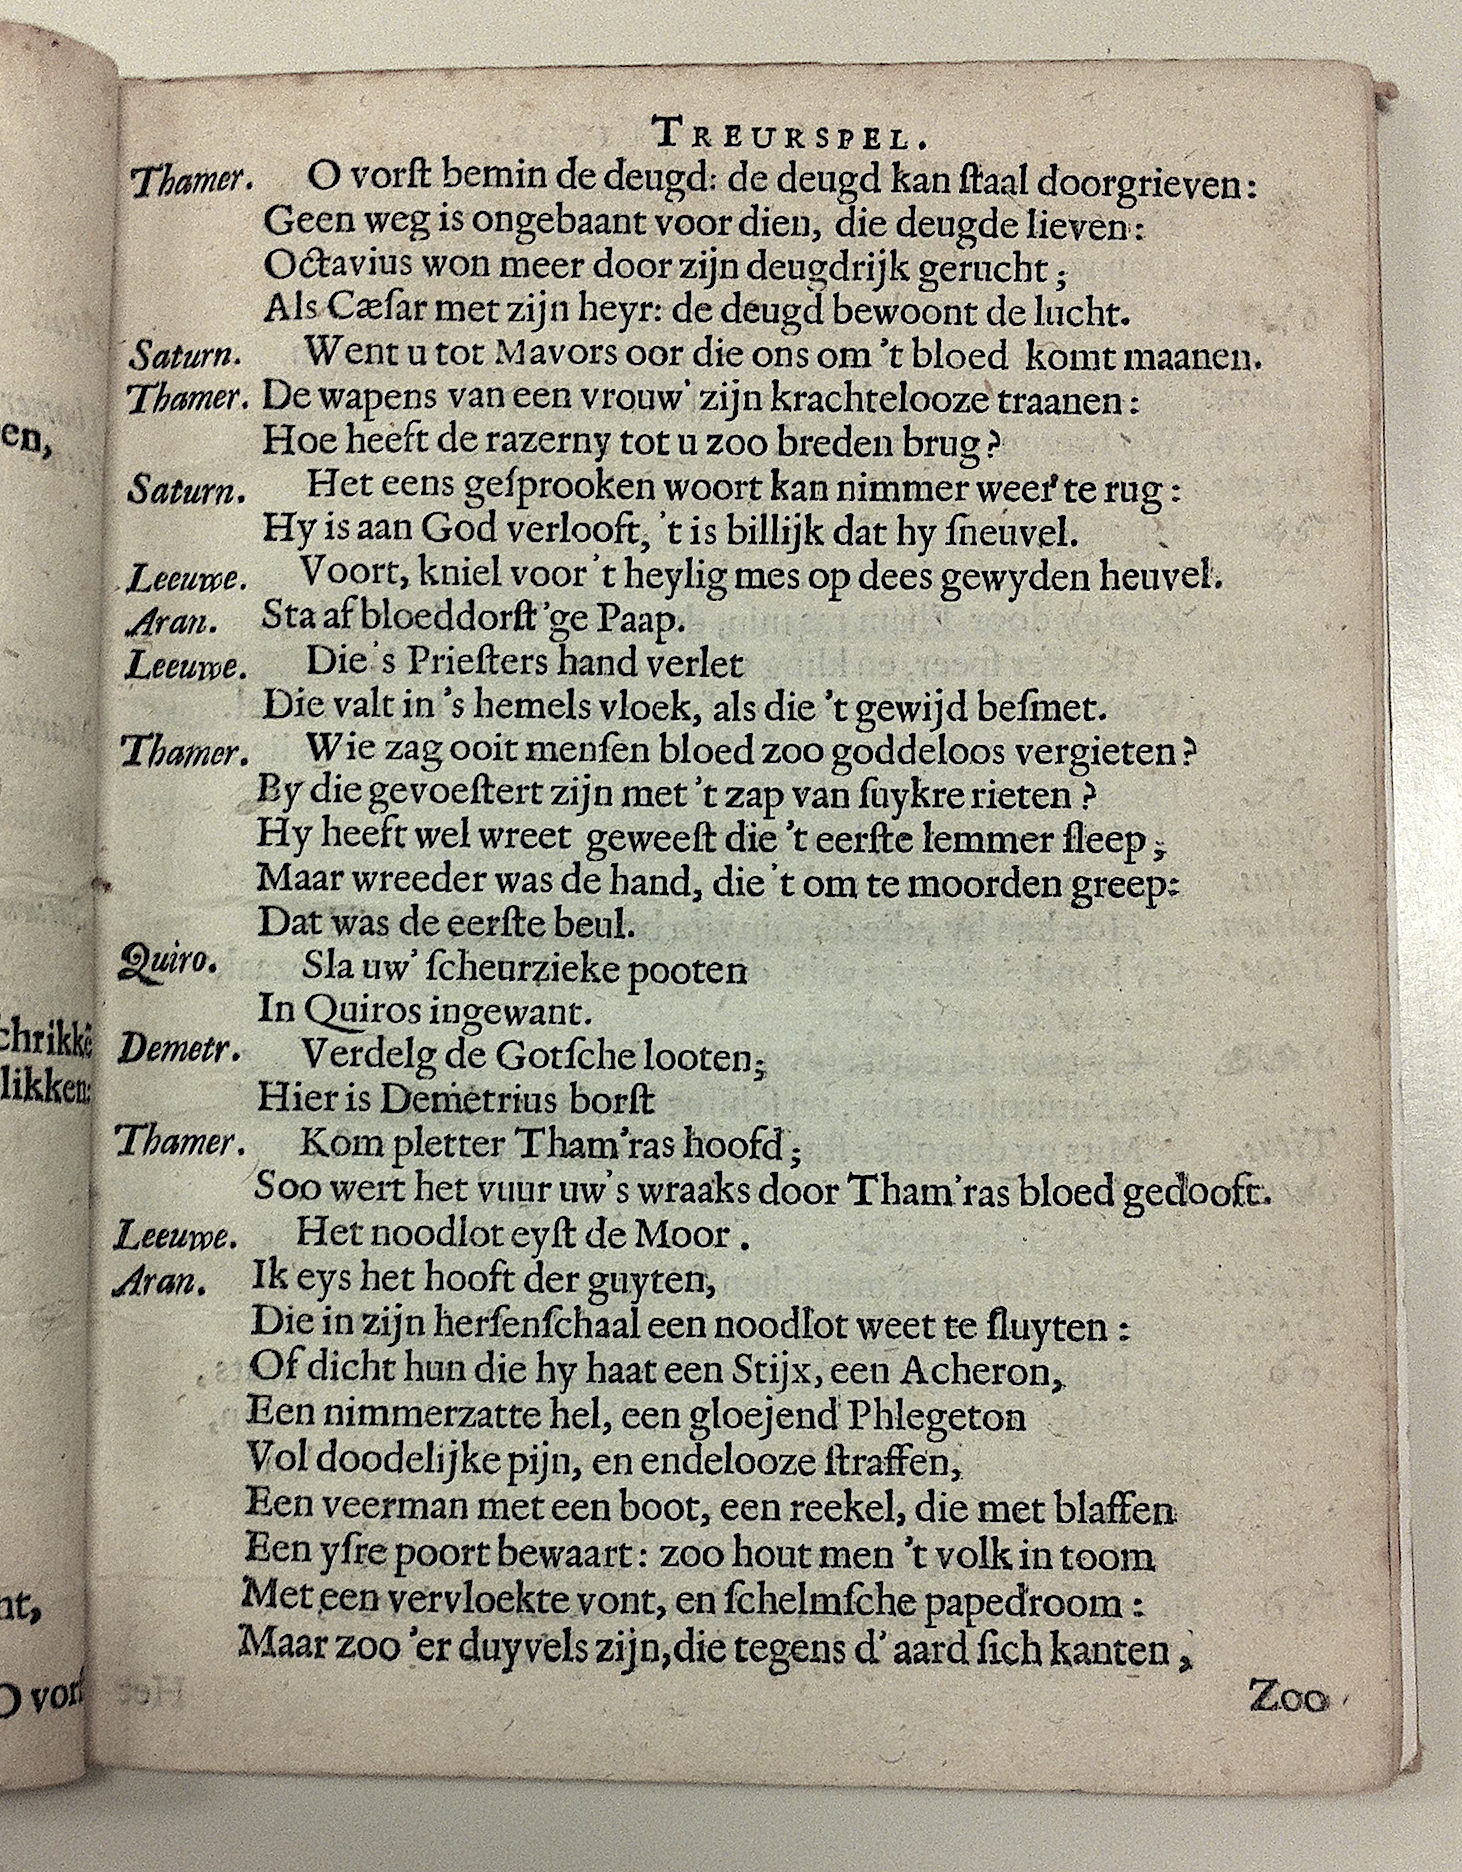 TREURSPEL.
Thamer. O vorſt bemin de deugd: de deugd kan ſtaal doorgrieven:
Geen weg is ongebaant voor dien, die deugde lieven:
Octavius won meer door zijn deugdrijk gerucht;
Als Cæſar met zijn heyr: de deugd bewoont de lucht.
Saturn. Went u tot Mavors oor die ons om 't bloed komt maanen.
Thamer. De wapens van een vrouw' zijn krachtelooze traanen:
Hoe heeft de razerny tot u zoo breden brug?
Saturn. Het eens geſprooken woort kan nimmer weer' te rug:
Hy is aan God verlooft, 't is billijk dat hy ſneuvel.
Leeuwe. Voort, kniel voor 't heylig mes op dees gewyden heuvel.
Aran. Sta af bloeddorſt'ge Paap.
Leeuwe. Die 's Prieſters hand verlet
Die valt in 's hemels vloek, als die 't gewijd beſmet.
Thamer. Wie zag ooit menſen bloed zoo goddeloos vergieten?
By die gevoeſtert zijn met 't zap van ſuykre rieten?
Hy heeft wel wreet geweeſt die 't eerſte lemmer ſleep;
Maar wreeder was de hand, die 't om te moorden greep:
Dat was de eerſte beul.
Quiro. Sla uw' ſcheurzieke pooten
In Quiros ingewant.
Demetr. Verdelg de Gotſche looten;
Hier is Demetrius borſt
Thamer. Kom pletter Tham'ras hoofd;
Soo wert het vuur uw's wraaks door Tham'ras bloed gedooft.
Leeuwe. Het noodlot eyſt de Moor.
Aran. Ik eys het hooft der guyten,
Die in zijn herſenſchaal een noodlot weet te fluyten:
Of dicht hun die hy haat een Stijx, een Acheron,
Een nimmerzatte hel, een gloejend Phlegeton
Vol doodelijke pijn, en endelooze ſtraffen,
Een veerman met een boot, een reekel, die met blaffen
Een yſre poort bewaart: zoo hout men 't volk in toom
Met een vervloekte vont, en ſchelmſche papedroom:
Maar zoo 'er duyvels zijn, die tegens d' aard ſich kanten,
Zoo
en,
chrikkē
likken:
nt,
O vorſ